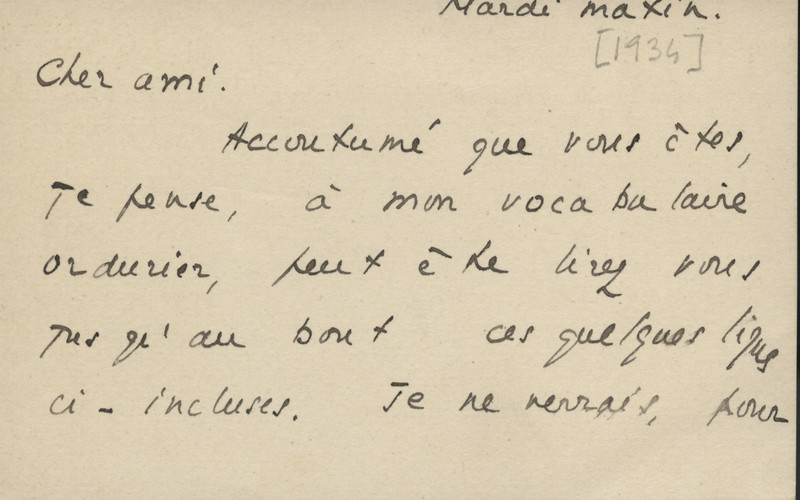 Mardi matin.
[1934]
Cher ami.
Accoutumé que vous êtes,
Je pense, à mon vocabulaire
ordurier, peut être lirez vous
jusqu'au bout ces quelques lignes
ci-incluses. Je ne verrais, pour